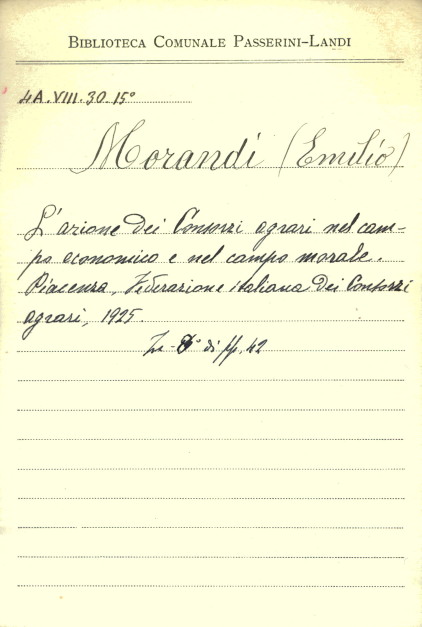 BIBLIOTECA COMUNALE PASSERINI-LANDI
4A.VIII.30.15°
Morandi (Emilio)
L'azione dei Consorzi agrari nel cam-
po economico e nel campo morale.
Piacenza, Federazione italiana dei Consorzi
agrari, 1925.
In-8° di pp. 42